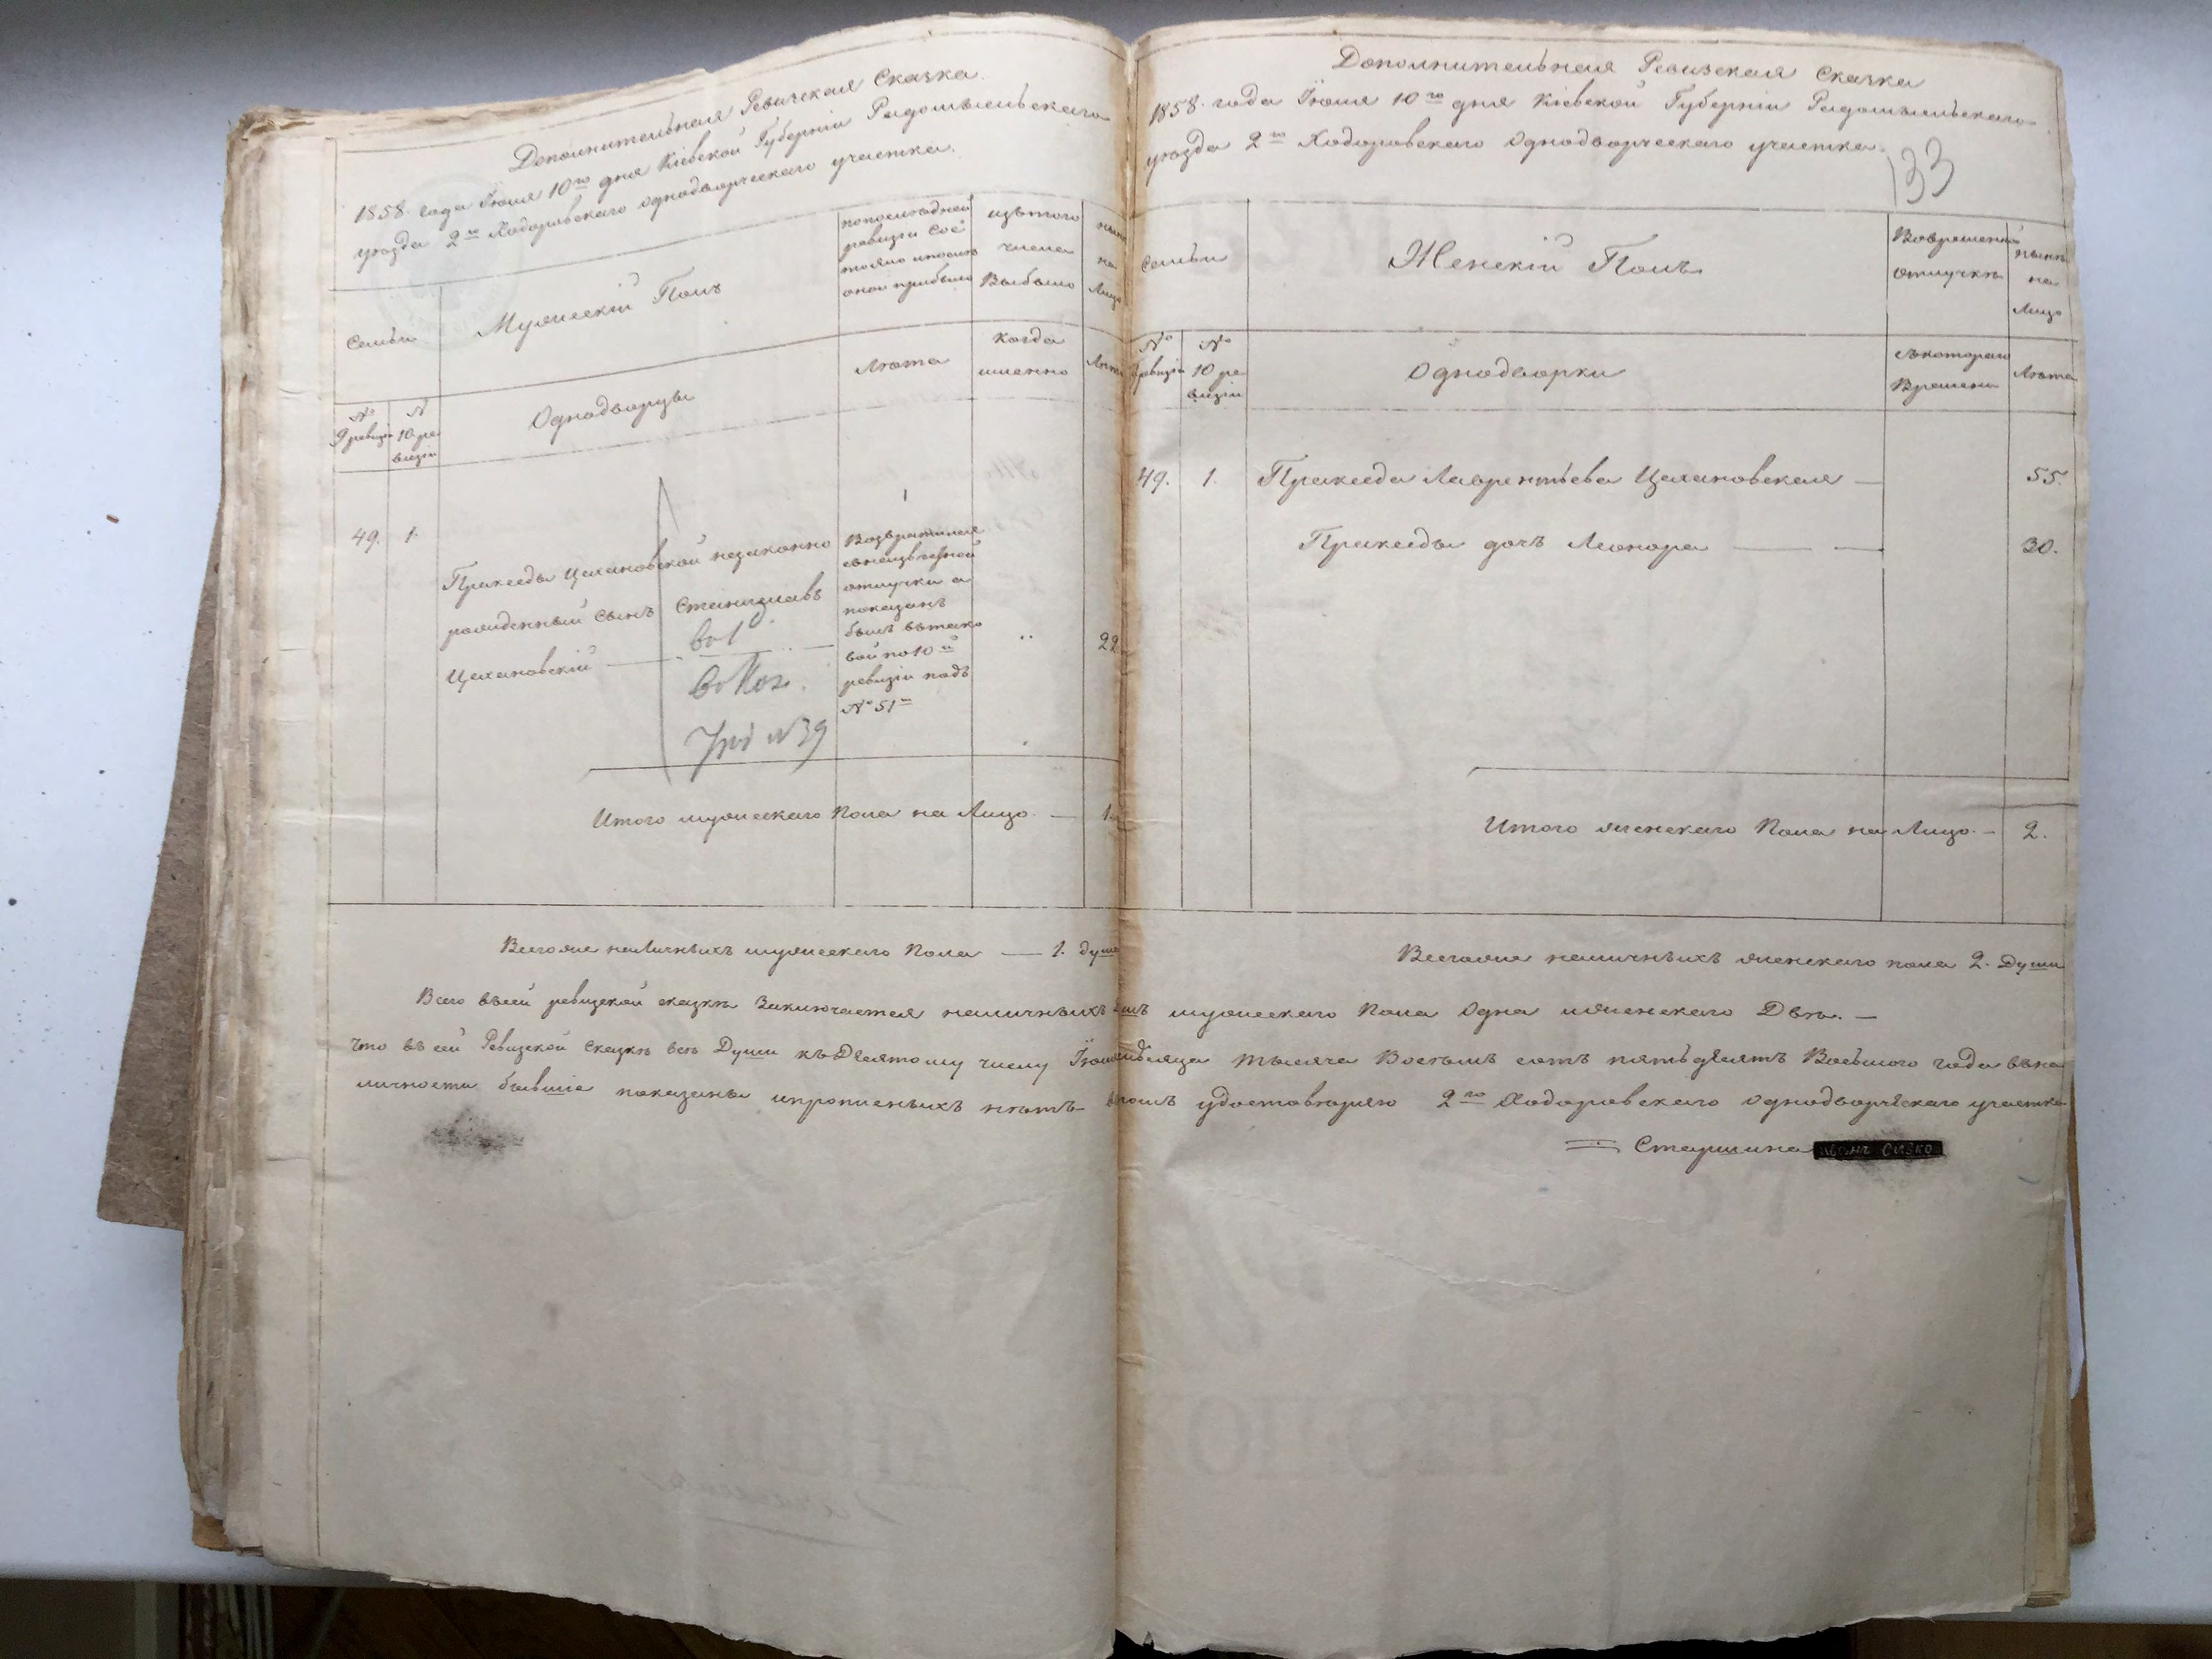 Дополнительная Ревизская Сказка
1858 года Іюня 10го дня Кіевской Губерніи Радомысльскаго
уезда 2го Ходоровскаго однодворческаго участка.
Семьи
Мужескій Полъ
по последней
ревизіи сос
тояло и после
оной прибыло
изъ того
числа
Выбыло
на
Лицо
Лета
Когда
именно
Лета
№
9 ревизіи
№
10 ре
визіи
Однодворцы
49. 1.
Пракседы Целановской незаконно
рожденный сынъ Станиславъ
Целановскій
1
Возвратился
отлучки а
показанъ
былъ въ тако
вой по 10й
ревизіи подъ
№ 51м
22
№ 39
Итого мужескаго Пола на Лицо — 1.
Всего же наличныхъ мужескаго Пола — 1. душа
Дополнительная Ревизская Сказка
1858 года Іюня 10го дня Кіевской Губерніи Радомысльскаго
уезда 2го Ходоровскаго Однодворческаго участка.
133
Семьи
Женскій Полъ
Во временной
отлучкѣ
нынѣ
на
Лицо
№
9 ревизіи
№
10 ре
визіи
Однодворки
съ котораго
Времени
Лета
49. 1. Праксeда Лаврентьева Целановская — 55.
Пракседы дочь Леонора — 30.
Итого женскаго Пола на Лицо — 2.
Всего же наличныхъ женскаго пола 2. Души
Всего въ сей ревизской сказкѣ Заключается наличныхъ душъ мужескаго Пола Одна и женскаго Двѣ. —
Что въ сей Ревизской Сказкѣ всѣ Души къ Десятому числу Іюня месяца тысяча Восемь сотъ пятьдесятъ Восьмого года въ на
личности бывшіе показаны и прописныхъ нѣтъ въ томъ удостоверяю 2го Ходоровскаго однодворческаго участка
Старшина